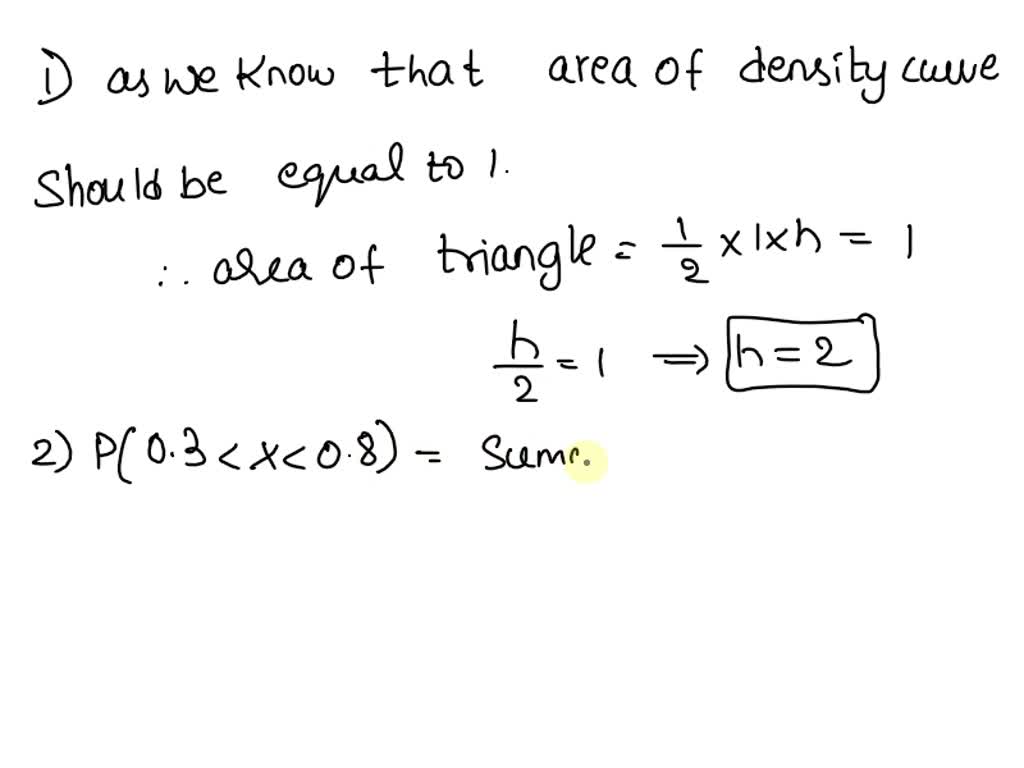 1) as we know that area of density curve
should be equal to 1.
∴ area of triangle = 1/2 × 1 × h = 1
h/2 = 1 ⟹ h = 2
2) P(0.3 < x < 0.8) =